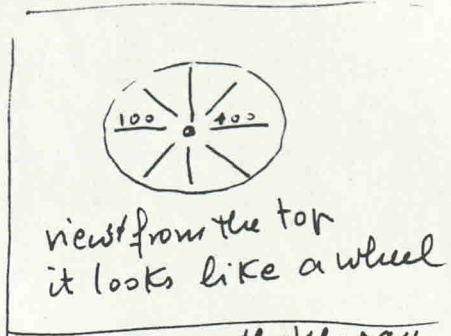 100 400
view from the top
it looks like a wheel